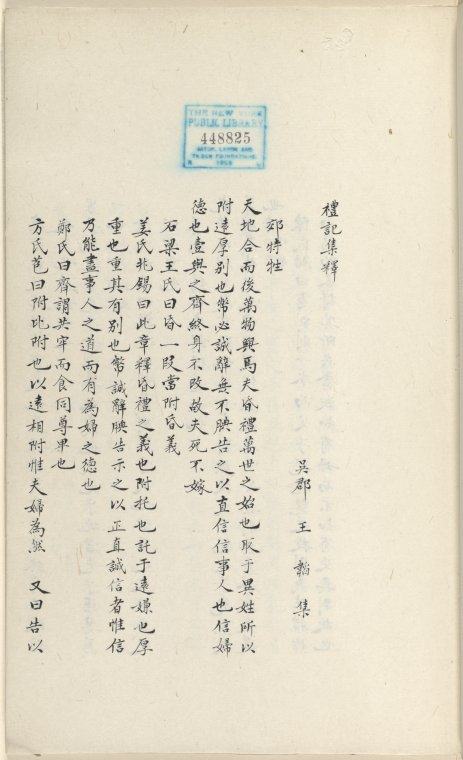 THE NEW YORK
PUBLIC LIBRARY
448825
ASTOR, LENOX AND
TILDEN FOUNDATIONS
禮記集釋
吳郡 王 翰 集
郊特牲
天地合而後萬物興焉夫昏禮萬世之始也取于異姓所以
附遠厚別也幣必誠辭無不腆告之以直信信事人也信婦
德也壹與之齊終身不改故夫死不嫁
石梁王氏曰昏一段當附昏義
姜氏兆錫曰此章釋昏禮之義也附托也託于遠嫌也厚
重也重其有別也幣誠辭腆告示之以正直誠信者惟信
乃能盡事人之道而有為婦之德也
鄭氏曰齊謂共牢而食同尊卑也
方氏苞曰附比附也以遠相附惟夫婦為然 又曰告以